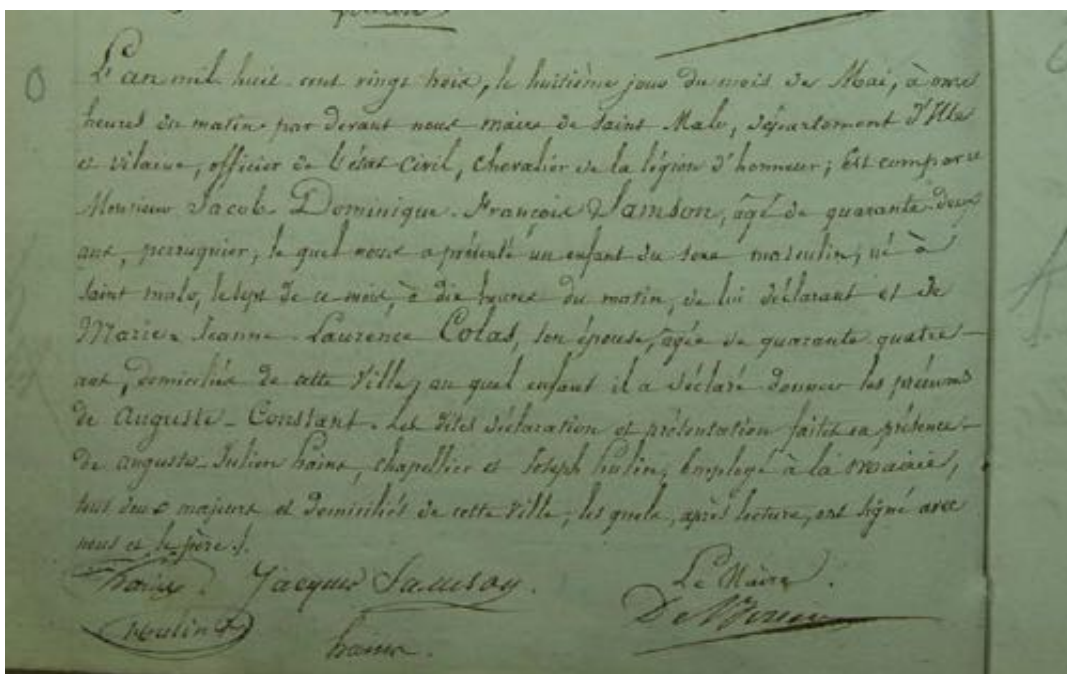 L'an mil huit cent vingt trois, le huitième jour du mois de Mai, à onze
heures du matin par devant nous maire de saint Malo, département d'Ille
et vilaine, officier de l'état civil, Chevalier de la légion d'honneur; Est comparu
Monsieur Jacob Dominique François Samson, âgé de quarante deux
ans, perruquier, le quel nous a présenté un enfant du sexe masculin, né à
saint malo, le sept de ce mois, à dix heures du matin, de lui déclarant et de
Marie Jeanne Laurence Colas, son épouse, agée de quarante quatre
ans, domiciliés de cette ville, au quel enfant il a déclaré donner les prénoms
de Auguste-Constant. Les dites déclaration et présentation faites en présence
de auguste Julien haine, chapellier et Joseph hulin, Employé à la mairie,
tous deux majeurs et domiciliés de cette ville; les quels, après lecture, ont signé avec
nous et le père.
Jacques Samson.
Le Maire.